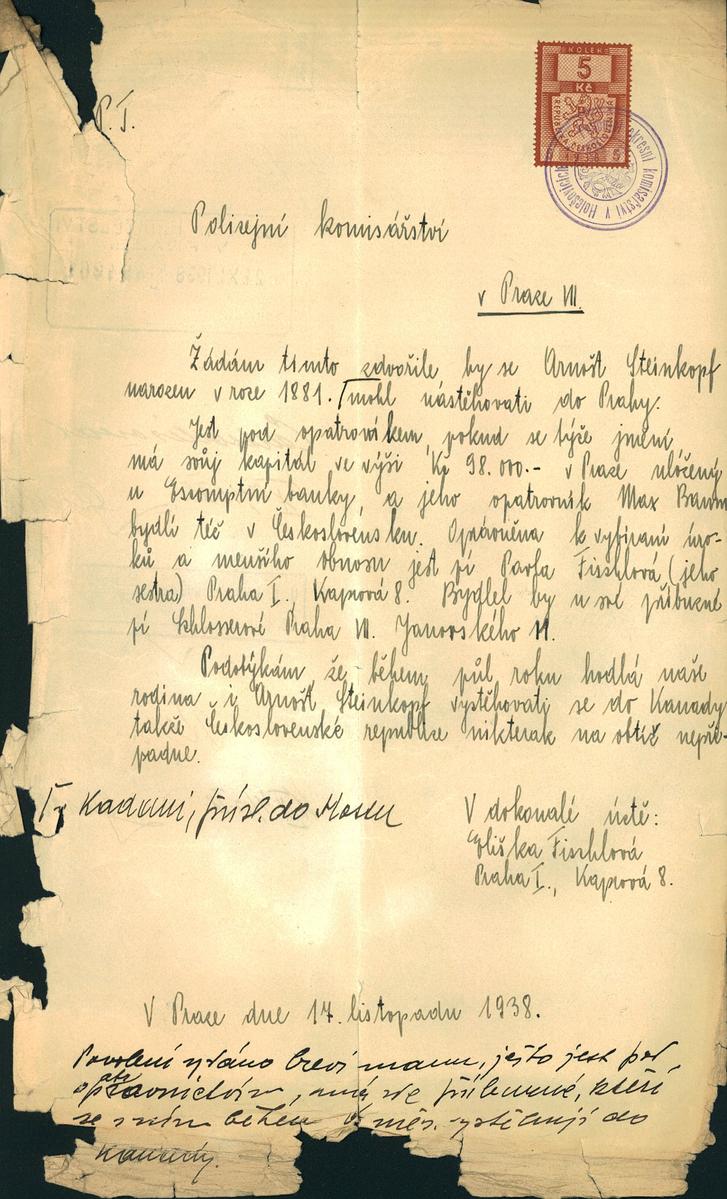 KOLEK
5
Kč
REPUBLIKA ČESKOSLOVENSKÁ
okresní komisařství v Holešovicích
P. T.
Polizejní komisářství
v Praze VII.
Žádám tímto zdvořile by se Arnošt Steinkopf
narozen v roze 1881. mohl nástěhovati do Prahy.
Jest pod opatrovníkem, pokud se týče jmění
má svůj kapitál ve výši Kč 98.000.- v Praze uložený
u Escomptní banky, a jeho opatrovník Max Baum
bydlí též v Československu. Oprávněna k vybírání úro-
ků a menšího obnosu jest pí Pavla Fischlová (jeho
sestra) Praha I., Kaprová 8. Bydlel by u své příbuzné
pí Schlosserové Praha VII. Janovského 11.
Podotýkám, že během půl roku hodlá naše
rodina i Arnošt Steinkopf vystěhovati se do Kanady
takže Československé republice nikterak na obtíž nepři-
padne.
v Kadani, přísl. do Mostu
V dokonalé úctě:
Eliška Fischlová
Praha I., Kaprová 8.
V Praze dne 14. listopadu 1938.
Povolení vydáno jest pod
opatrovnictvím, má zde příbuzné, kteří
se s ním během měs. vystěhují do
Kanady.